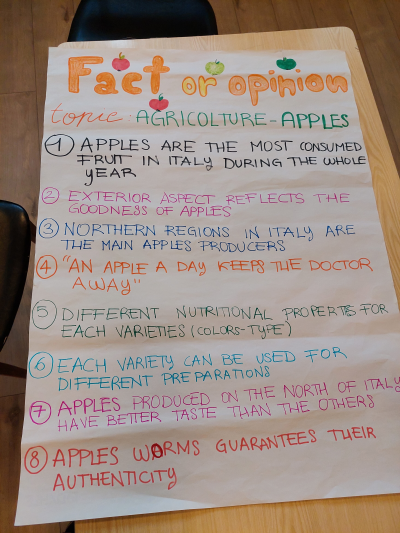 Fact or opinion
topic: AGRICOLTURE-APPLES
1 APPLES ARE THE MOST CONSUMED
FRUIT IN ITALY DURING THE WHOLE
YEAR
2 EXTERIOR ASPECT REFLECTS THE
GOODNESS OF APPLES
3 NORTHERN REGIONS IN ITALY ARE
THE MAIN APPLES PRODUCERS
4 "AN APPLE A DAY KEEPS THE DOCTOR
AWAY"
5 DIFFERENT NUTRITIONAL PROPERTIES FOR
EACH VARIETIES (COLORS-TYPE)
6 EACH VARIETY CAN BE USED FOR
DIFFERENT PREPARATIONS
7 APPLES PRODUCED ON THE NORTH OF ITALY
HAVE BETTER TASTE THAN THE OTHERS
8 APPLES WORMS GUARANTEES THEIR
AUTHENTICITY